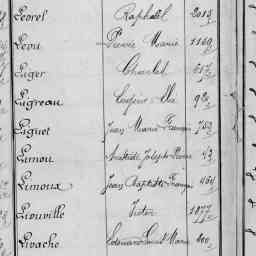 Levrel Raphaël 2019
Levu Pierre Marie 1160
Liger Charles 617
Ligreau Eugène 920
Liguet Jean Marie François 752
Limou Anatole Joseph Pierre 43
Limoux Jean Baptiste François 464
Liouville Victor 1077
Livache Edouard Louis Marie 400